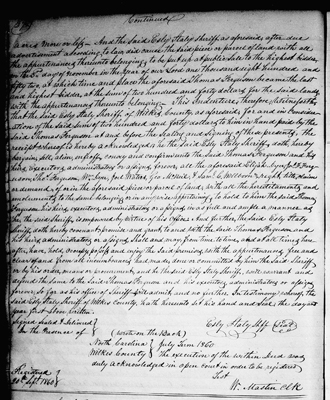 Continued
acres more or less. And the said Esly Staly Sheriff as aforesaid, after due
advertisement according to law did cause the said piece or parcel of land with all
the appurtenances thereunto belonging, to be put up at public sale to the highest bidder,
on the 5th day of November in the year of our Lord one thousand eight hundred and
fifty at which time and place the aforesaid Thomas Ferguson became the last
and highest bidder, at the sum of two hundred and forty dollars for the said land,
with the appurtenances thereunto belonging. This Indenture, therefore, witnesseth
that the said Esly Staly Sheriff of Wilkes County as aforesaid, for and in consider-
ation of the said sum of two hundred and forty dollars to him in hand paid by the
said Thomas Ferguson at and before the sealing and signing of these presents. The
receipt whereof is hereby acknowledged, he the said Esly Staly Sheriff, doth hereby
bargain, sell, alien, enfeoff, convey and confirm unto the said Thomas Ferguson and his
heirs executors, administrators or assigns forever all the aforesaid
right, title, claim
or demand, of in the aforesaid piece or parcel of land, with all the hereditaments and
emoluments to the same belonging or in any wise appertaining, to hold to him the said Thomas
Ferguson his heirs, executors, administrators or assigns, in as full and ample a manner, as
the said Sheriff, is empowered by virtue of his office. And further, the said Esly Staly
Sheriff, doth hereby covenant promise and grant to and with the said Thomas Ferguson and
his heirs administrators or assigns, shall and may from time to time, and at all times here-
after, have, hold, occupy, possess and enjoy the said premises, with the appurtenances, free and
clear of and from all incumbrances had made, done or committed by him the said Sheriff
or by his order, means or procurement, and he the said Esly Staly Sheriff, will warrant and
defend the same to the said Thomas Ferguson and his executors, administrators or assigns
forever so far as his office of Sheriff and no further. In testimony whereof, the
said Esly Staly Sheriff of Wilkes County, hath hereunto set his hand and seal the day and
year first above written.
Signed sealed & delivered
in the presence of
Esly Staly Shff (Seal)
(written on the Back)
North Carolina } July Term 1860
Wilkes County } the execution of the within deed was
duly acknowledged in open court in order to be registered
Test
W. Mastin Clk
Registered
20th Sept. 1860